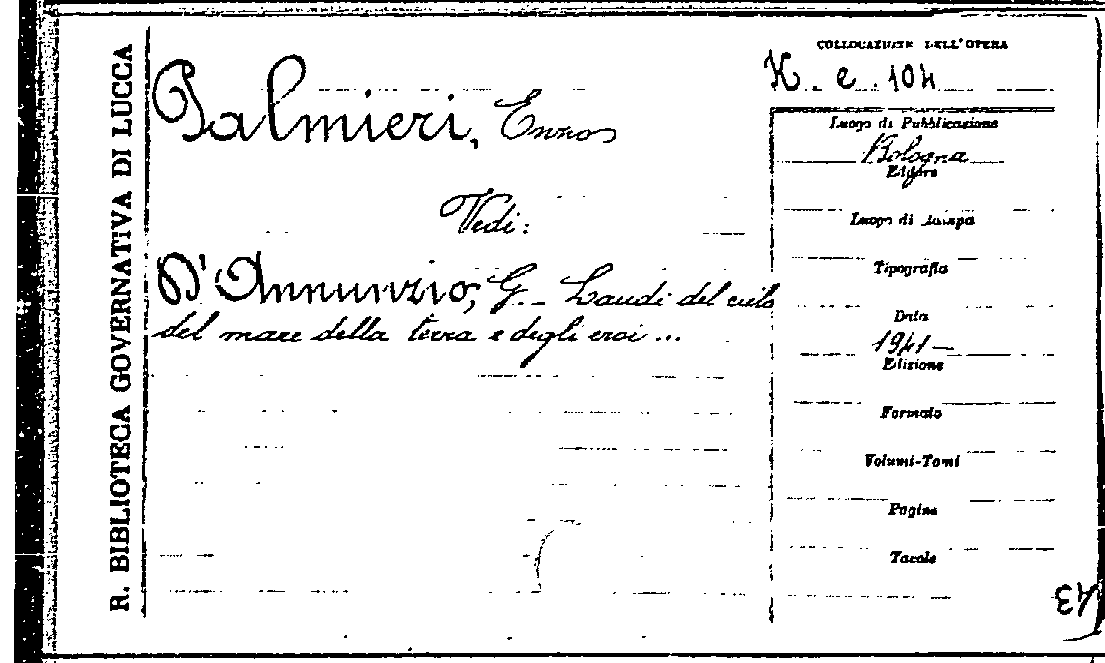 R. BIBLIOTECA GOVERNATIVA DI LUCCA
COLLOCAZIONE DELL'OPERA
K. e. 104
Palmieri, Ennos
Vedi:
D'Annunzio, G. - Laudi del cielo
del mare della terra e degli eroi ...
Luogo di Pubblicazione
Bologna
Editore
Luogo di Stampa
Tipografia
Data
1941-
Edizione
Formato
Volumi-Tomi
Pagine
Tavole